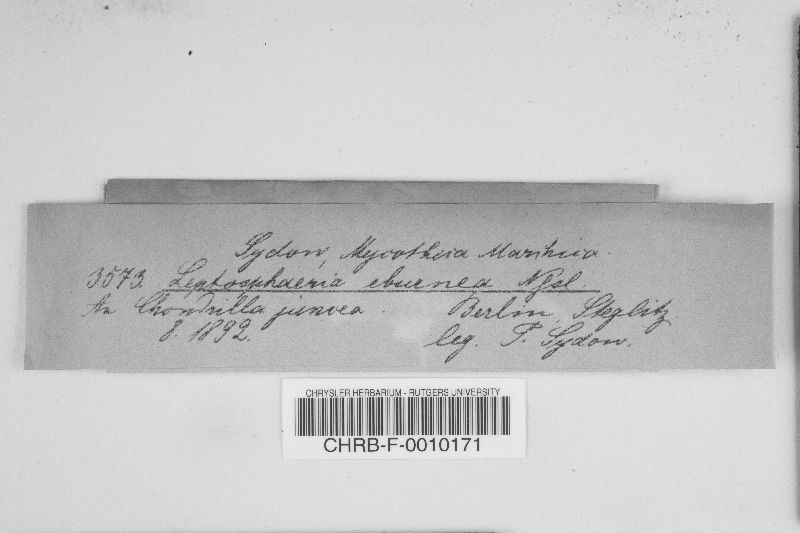 Sydow, Mycotheca Marchica.
3573. Leptosphaeria eburnea Nssl.
An Chondrilla juncea. Berlin, Steglitz.
8. 1892. leg. P. Sydow.
CHRYSLER HERBARIUM - RUTGERS UNIVERSITY
CHRB-F-0010171